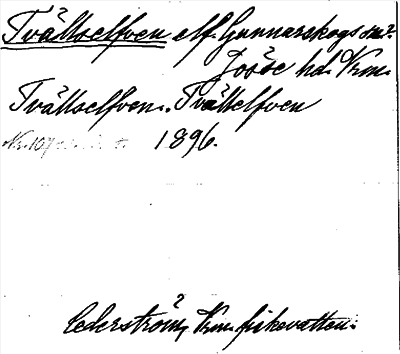 Tvällselfven elf. Gunnarskogs sn.
Jösse hd. Vrm.
Tvällselfven. Tvällelfven
Nr. 107 1896.
Cederström, Vrm. fiskevatten.